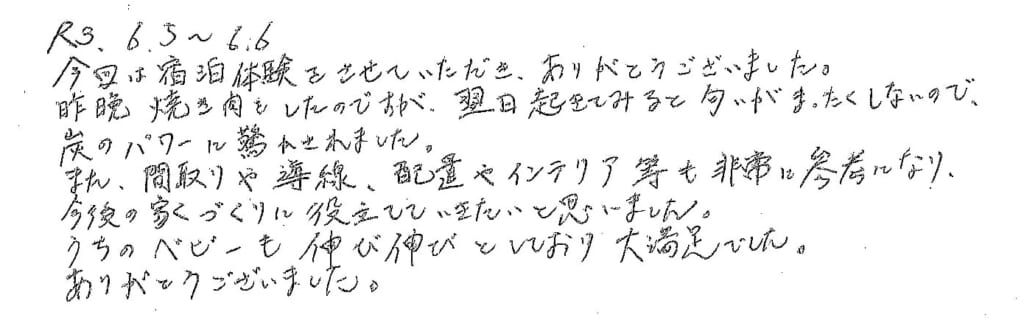 R3. 6.5～6.6
今回は宿泊体験をさせていただき、ありがとうございました。
昨晩 焼き肉をしたのですが、翌日起きてみると匂いがまったくしないので、
炭のパワーに驚かされました。
また、間取りや導線、配置やインテリア等も非常に参考になり、
今後の家づくりに役立てていきたいと思いました。
うちのベビーも伸び伸びとしており大満足でした。
ありがとうございました。